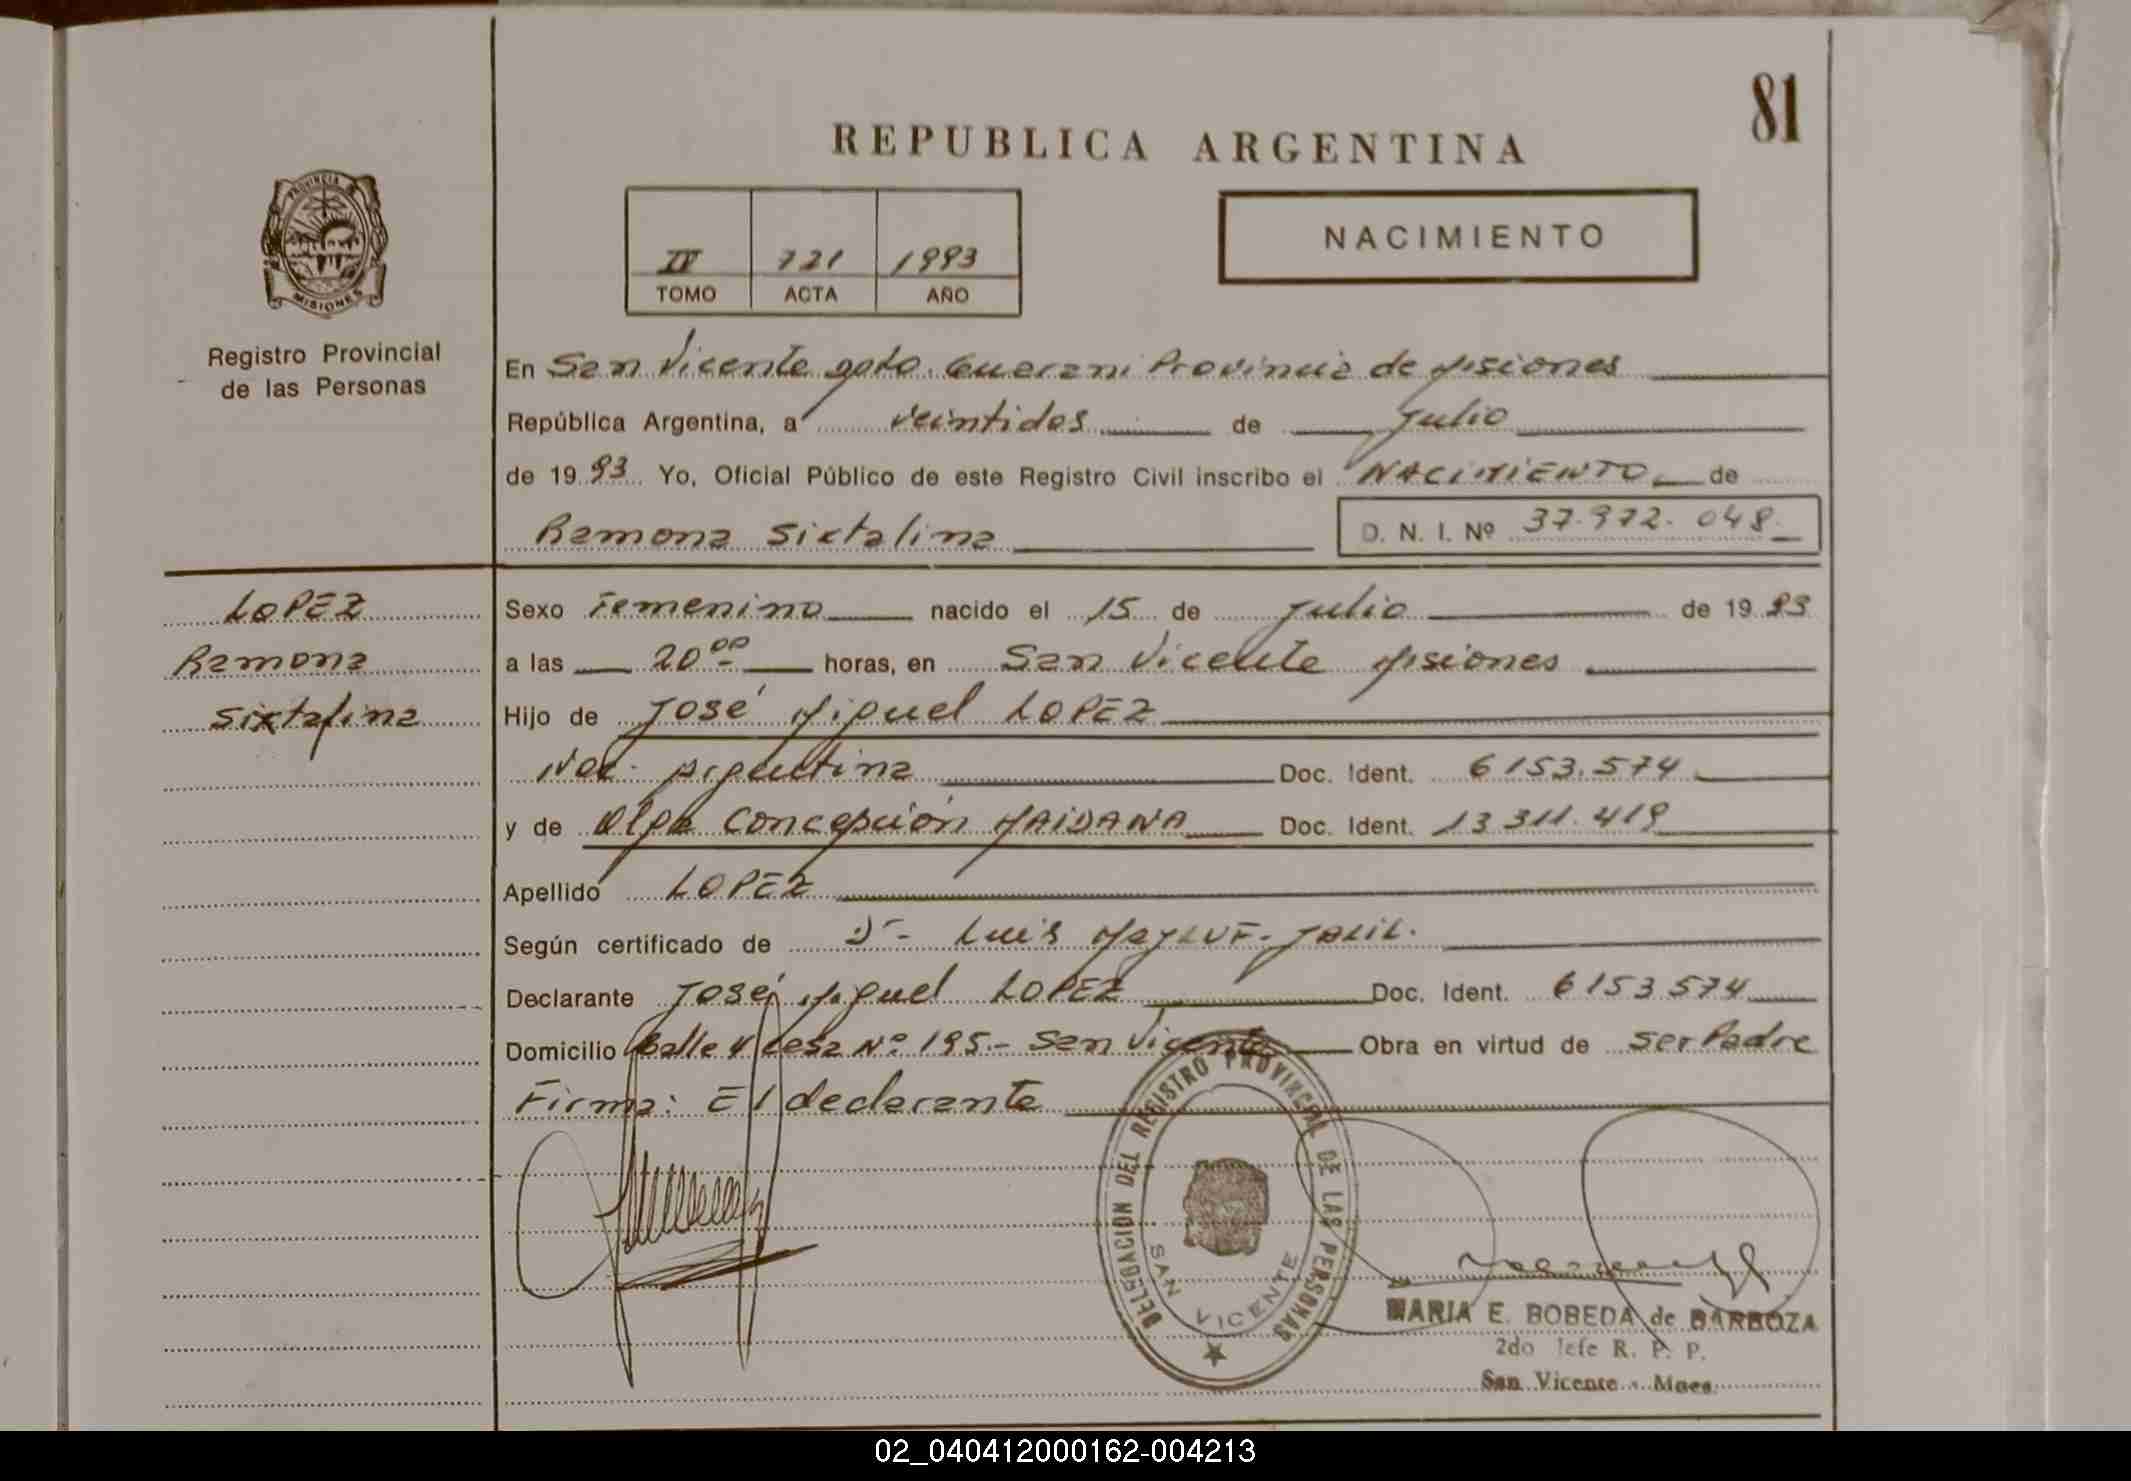 81
REPUBLICA ARGENTINA
PROVINCIA DE
MISIONES
Registro Provincial
de las Personas
IV 721 1993
TOMO ACTA AÑO
NACIMIENTO
En San Vicente gpto. Guarani Provincia de Misiones
República Argentina, a veintidos de Julio
de 1993 Yo, Oficial Público de este Registro Civil inscribo el NACIMIENTO de
Ramona Sixtalina D. N. I. Nº 37.972.048.
LOPEZ
Ramona
Sixtalina
Sexo Femenino nacido el 15 de Julio de 1993
a las 20 00 horas, en San Vicente Misiones
Hijo de José Miguel LOPEZ
Nac. Argentina Doc. Ident. 6153.574
y de Olga Concepción MAIDANA Doc. Ident. 13.311.419
Apellido LOPEZ
Según certificado de Dr- Luis JALIL.
Declarante José Miguel LOPEZ Doc. Ident. 6153.574
Domicilio Calle y Casa Nº 195.- San Vicente Obra en virtud de Ser Padre
Firma: El declarante
DELEGACION DEL REGISTRO PROVINCIAL DE LAS PERSONAS
SAN VICENTE
MARIA E. BOBEDA de BARBOZA
2do Jefe R. P. P.
San Vicente - Mnes
02_040412000162-004213